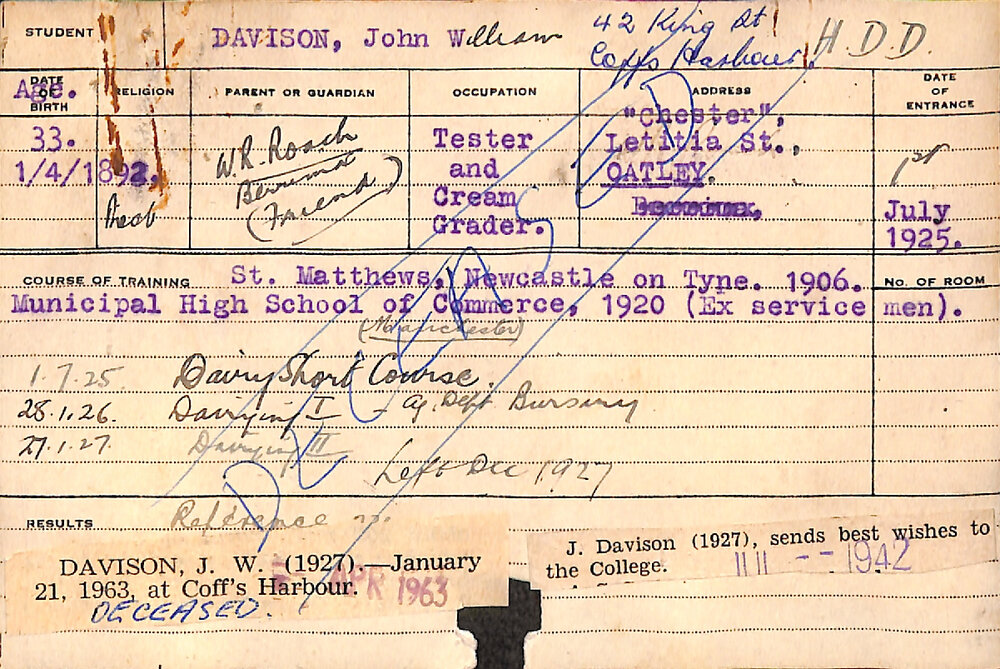 STUDENT DAVISON, John William 42 King St H.D.D.
Coffs Harbour.
DATE OF BIRTH Age. RELIGION PARENT OR GUARDIAN OCCUPATION ADDRESS DATE OF ENTRANCE
33. W.R. Roach Tester "Chester", 1st
1/4/1892. Berrima and Letitia St.,
Presb (Friend) Cream OATLEY. July
Grader. 1925.
COURSE OF TRAINING St. Matthews, Newcastle on Tyne. 1906. No. OF ROOM
Municipal High School of Commerce, 1920 (Ex service men).
(Manchester)
1.7.25 Dairy Short Course.
28.1.26. Dairying I - Ag. Dept Bursary
27.1.27. Dairying II
Left Dec 1927
DECEASED
RESULTS Reference
DAVISON, J. W. (1927).—January
21, 1963, at Coff's Harbour.
APR 1963
DECEASED.
J. Davison (1927), sends best wishes to
the College.
1942